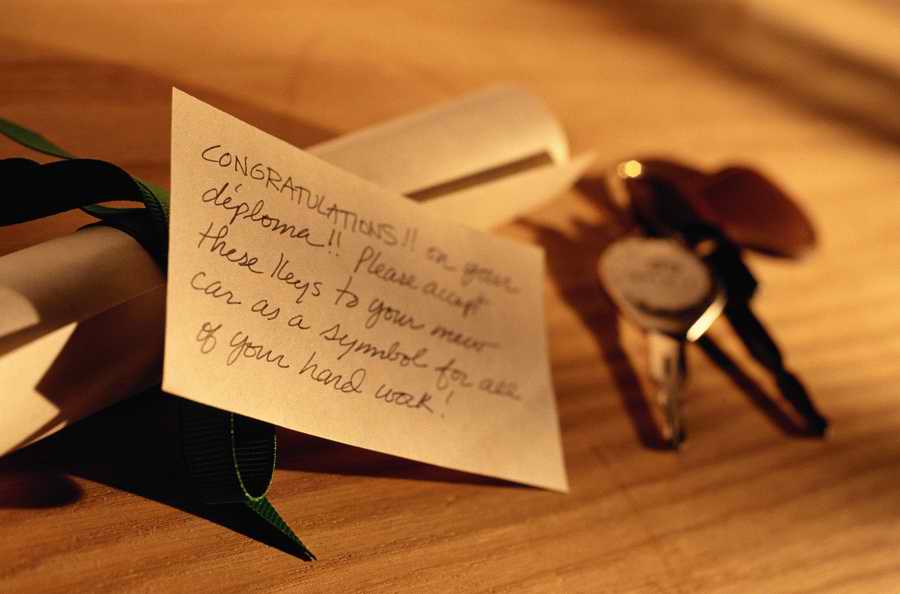 CONGRATULATIONS!! on your
diploma!! Please accept
these keys to your new
car as a symbol for all
of your hard work!